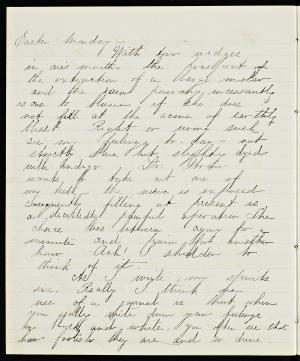 Easter Monday —
With four wedges
in one's mouth — the prospect of
the extraction of a large molar
and the pain incessantly
is one to blame if she does
not fill at the acme of earthly
bliss? Right or wrong such
are my feelings to-day — not
strictly blue but slightly dyed
with indigo.
wants to take out one of
my the nerve is exposed
consequently filling at present is
a decidedly painful operation. The
choice lies between agony for a
minute and pain for another
hour. Ach! I shudder to
think of it —
As I write my spirits
rise. Really I think the
use of a journal is that when
you write down your feelings
in black and white, you then see that
how foolish they are and so drive